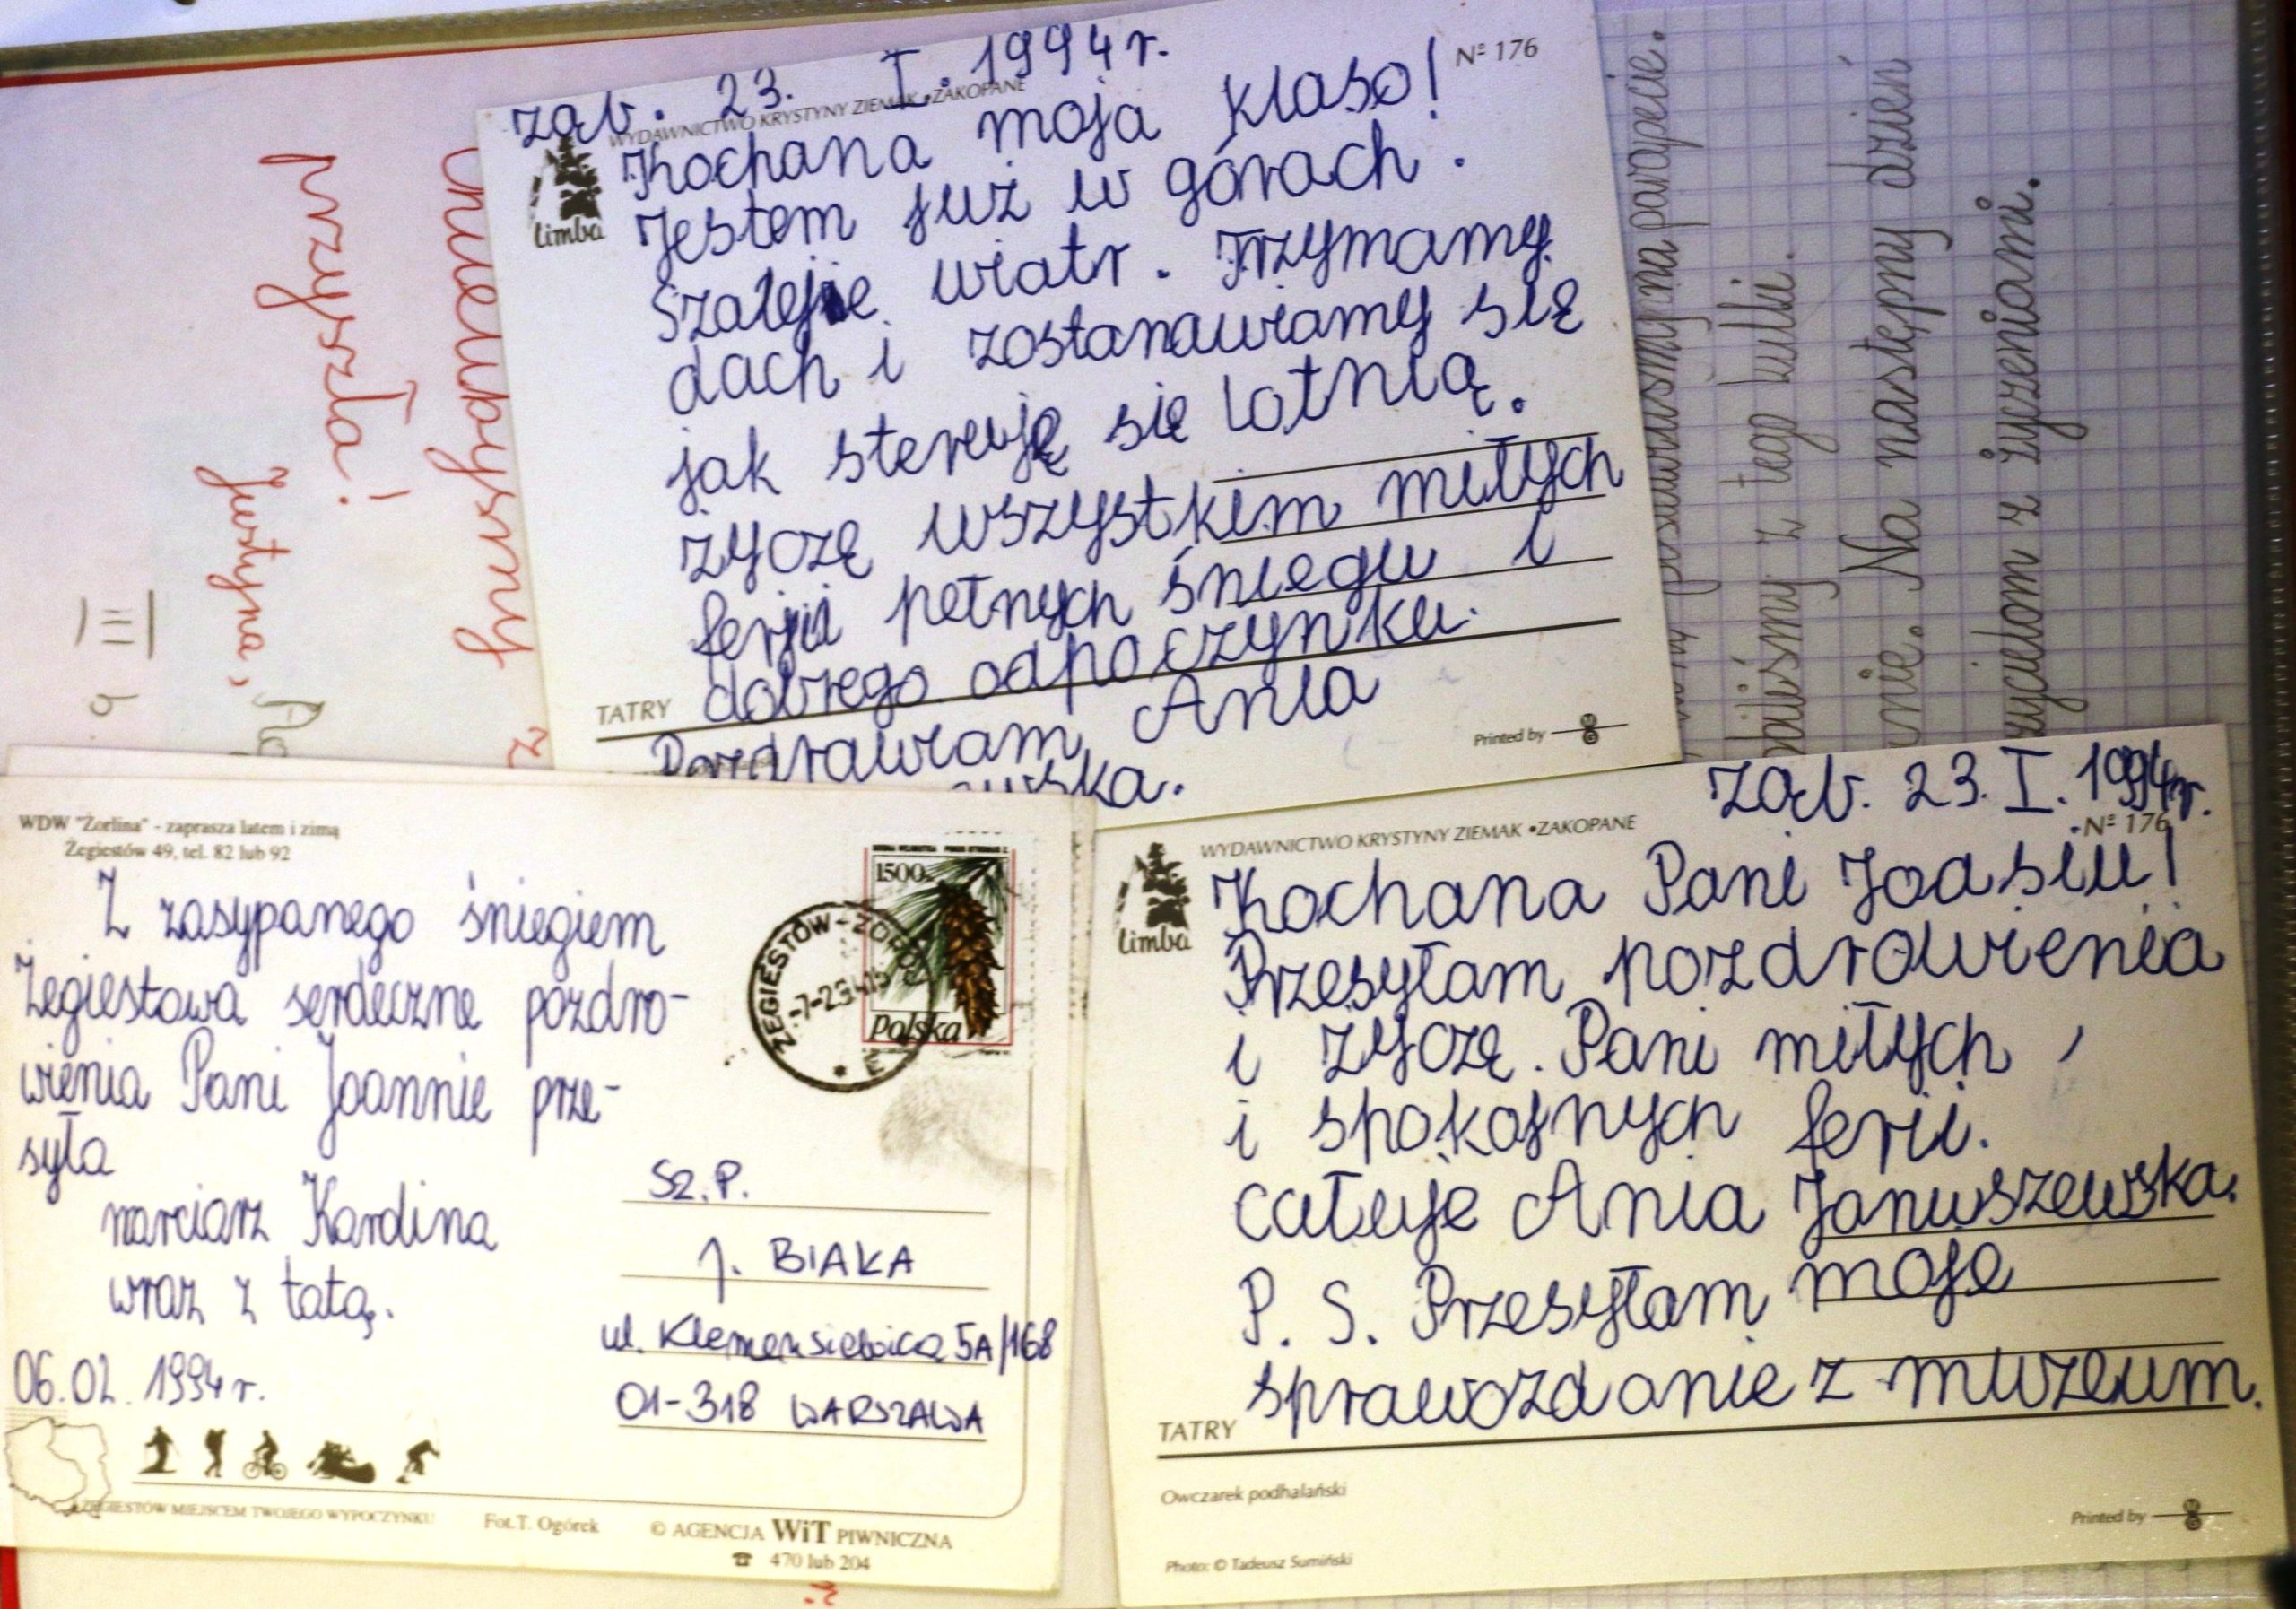 ząb. 23. I. 1994r.
WYDAWNICTWO KRYSTYNY ZIEMAK •ZAKOPANE
Nº 176
limba
Kochana moja klaso!
Jestem już w górach.
Szaleje wiatr. Trzymamy
dach i zostanawiamy się
jak steruję się lotnią.
życzę wszystkim miłych
ferii pełnych śniegu i
dobrego odpoczynku.
TATRY
Pozdrawiam, Ania
Printed by
WDW "Żorlina" - zaprasza latem i zimą
Żegiestów 49, tel. 82 lub 92
Z zasypanego śniegiem
Żegiestowa serdeczne pozdro-
wienia Pani Joannie prze-
syła
narciarz Karolina
wraz z tatą.
06.02.1994r.
1500
polska
ŻEGIESTÓW-ZDRÓJ
Sz. P.
J. BIAKA
ul. Klemensiewicza 5A/168
01-318 WARSZAWA
ŻEGIESTÓW MIEJSCEM TWOJEGO WYPOCZYNKU
Fot.T. Ogórek
© AGENCJA WiT PIWNICZNA
☎ 470 lub 204
ząb. 23. I. 1994r.
WYDAWNICTWO KRYSTYNY ZIEMAK •ZAKOPANE
Nº 176
limba
Kochana Pani Joasiu!
Przesyłam pozdrowienia
i życzę Pani miłych,
i spokojnych ferii.
całuje Ania Januszewska.
P. S. Przesyłam moje
sprawozdanie z muzeum.
TATRY
Owczarek podhalański
Printed by
Photo: © Tadeusz Sumiński
przyszła!
Justyna,
na parapecie.
z tego kulki.
Na następny dzień
z życzeniami.